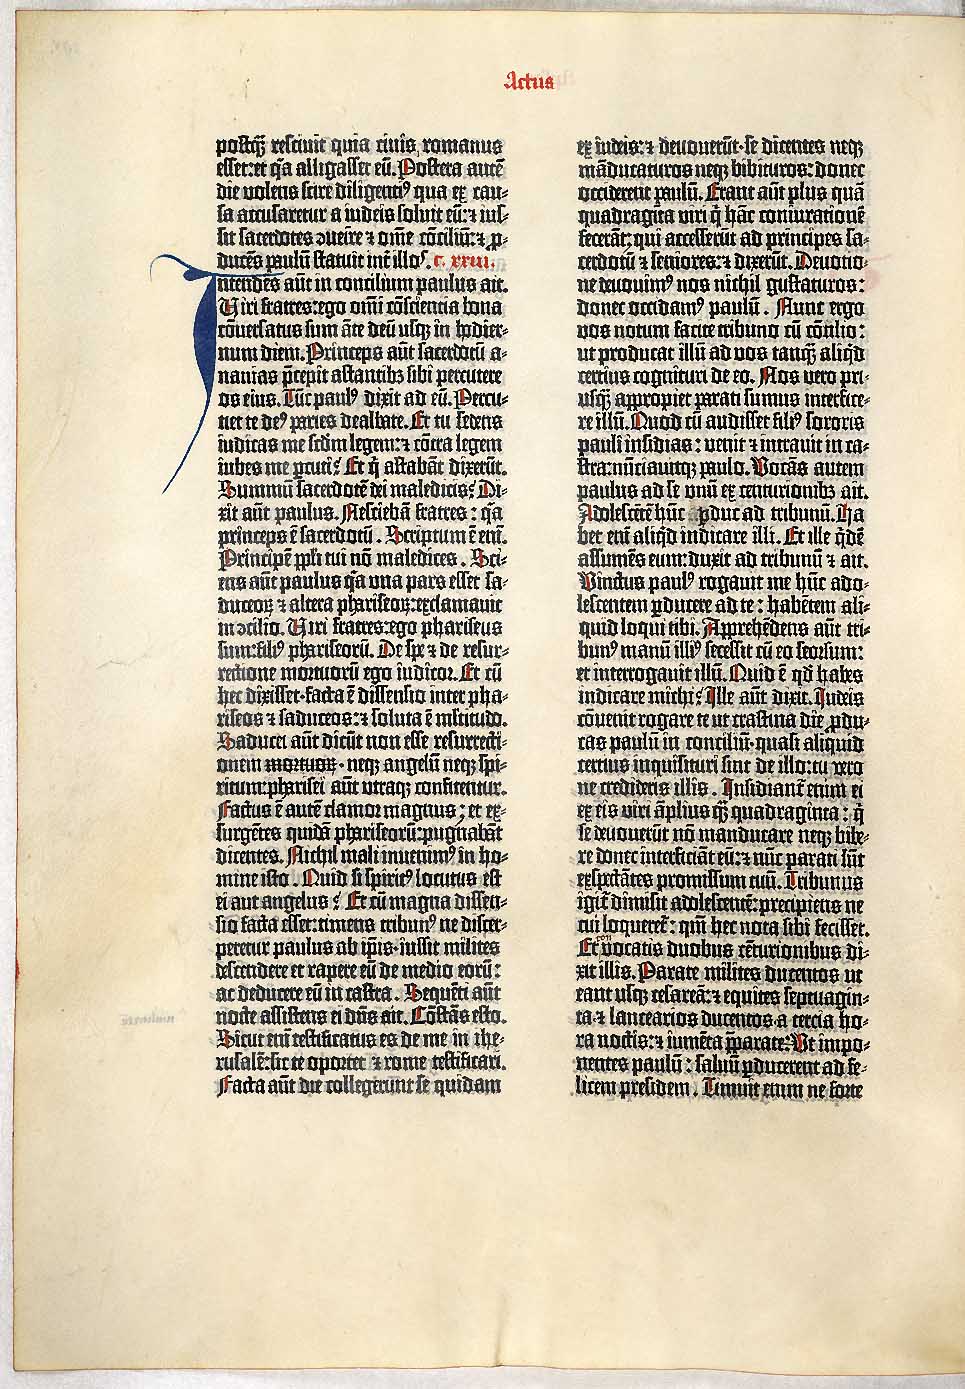 Actus
postq̄ꝫ resciuit quia ciuis romanus
esset:et q̇a alligasset eū. Postera autē
die volens scire diligentiꝰ qua ex cau-
sa accusaretur a iudeis soluit eū:⁊ ius-
sit sacerdotes ↄuenire ⁊ om̄e cōciliū:⁊ ꝓ-
ducēs paulū statuit int̄ illos. c. xxiii.
Intendēs aūt in concilium paulus ait.
Viri fratres:ego om̄i cōscientia bona
cōuersatus sum āte deū usqꝫ in hodier-
num diem. Princeps aūt sacerdotū a-
nanias p̄cepit astantibꝫ sibi percutere
os eius. Tūc paulꝰ dixit ad eū. Percu-
tiet te deꝰ paries dealbate. Et tu sedens
iudicas me scd̄m legem:⁊ cōtra legem
iubes me ꝑcuti? Et q̇ astabāt dixerūt.
Summū sacerdotē dei maledicis? Di-
xit aūt paulus. Nesciebā fratres : q̇a
princeps ē sacerdotū. Scriptum ē eni̅.
Principē pp̄li tui nō maledices. Sci-
ens aūt paulus q̇a una pars esset sa-
duceoꝝ ⁊ altera phariseoꝝ:exclamauit
in ↄcilio. Viri fratres:ego phariseus
sum:filiꝰ phariseorū. De spe ⁊ de resur-
rectione mortuorū ego iudicor. Et cū
hec dixisset·facta ē dissensio inter pha-
riseos ⁊ saduceos:⁊ soluta ē m̄ltitudo.
Saducei aūt dicūt non esse resurrecti-
onem mortuoꝝ · neqꝫ angelū neqꝫ spi-
ritum:pharisei aūt utraqꝫ confitentur.
Factus ē autē clamor magnus; et ex-
surgētes quidā phariseorū:pugnabāt
dicentes. Nichil mali inuenimꝰ in ho-
mine isto. Quid si spiritꝰ locutus est
ei aut angelus? Et cū magna dissen-
sio facta esset:timens tribunꝰ ne discer-
peretur paulus ab ip̄is·iussit milites
descendere et rapere eū de medio eorū:
ac deducere eū in castra. Sequēti aūt
nocte assistens ei dn̄s ait. Cōstās esto.
Sicut eni̅ testificatus es de me in ihe-
rusalē:sic te oportet ⁊ rome testificari.
Facta aūt die collegerunt se quidam
ex iudeis:⁊ deuouerūt·se dicentes neqꝫ
māducaturos neqꝫ bibituros: donec
occiderent paulū. Erant aūt plus quā
quadragita viri q̇ hāc coniurationē
fecerāt; qui accesserūt ad principes sa-
cerdotū ⁊ seniores:⁊ dixerūt. Deuotio-
ne deuouimꝰ nos nichil gustaturos:
donec occidamꝰ paulū. Nunc ergo
vos notum facite tribuno cū cōcilio:
ut producat illū ad vos tanqꝫ aliq̇d
certius cognituri de eo. Nos vero pri-
usqꝫ appropiet parati sumus interfice-
re illū. Quod cū audisset filiꝰ sororis
pauli insidias: venit ⁊ intrauit in ca-
stra:nūciauitqꝫ paulo. Vocās autem
paulus ad se unū ex centurionibꝫ ait.
Adolescētē hūc ꝑduc ad tribunū. Ha
bet eni̅ aliq̇d indicare illi. Et ille q̇dē
assumēs eum:duxit ad tribunū ⁊ ait.
Vinctus paulꝰ rogauit me hūc ado-
lescentem ꝑducere ad te: habētem ali-
quid loqui tibi. Apprehēdens aūt tri-
bunꝰ manū illiꝰ secessit cū eo seorsum:
et interrogauit illū. Quid ē qd̄ habes
indicare michi? Ille aūt dixit. Iudeis
cōuenit rogare te ut crastina die ꝓdu-
cas paulū in conciliū·quasi aliquid
certius inquisituri sint de illo:tu vero
ne credideris illis. Insidiant̄ enim ei
ex eis viri āplius q̄ꝫ quadraginta: q̇
se deuouerūt nō manducare neqꝫ bibe-
re donec interficiāt eū:⁊ nūc parati sūt
expectātes promissum tuū. Tribunus
igit̄ dimisit adolescentē:precipiens ne
cui loqueret̄: qm̄ hec nota sibi fecisset.
Et vocatis duobus cēturionibus di-
xit illis. Parate milites ducentos ut
eant usqꝫ cesareā:⁊ equites septuagin-
ta·⁊ lancearios ducentos·a tercia ho-
ra noctis:⁊ iumēta p̄parate:Ut impo-
nentes paulū: saluū ꝑducerent ad fe-
licem presidem. Timuit enim ne forte